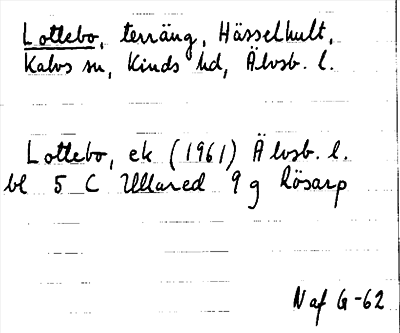 Lottebo, terräng, Hässelhult,
Kalvs sn, Kinds hd, Älvsb. l.
Lottebo, ek (1961) Älvsb. l.
bl 5 C Ullared 9 g Rösarp
N af G-62